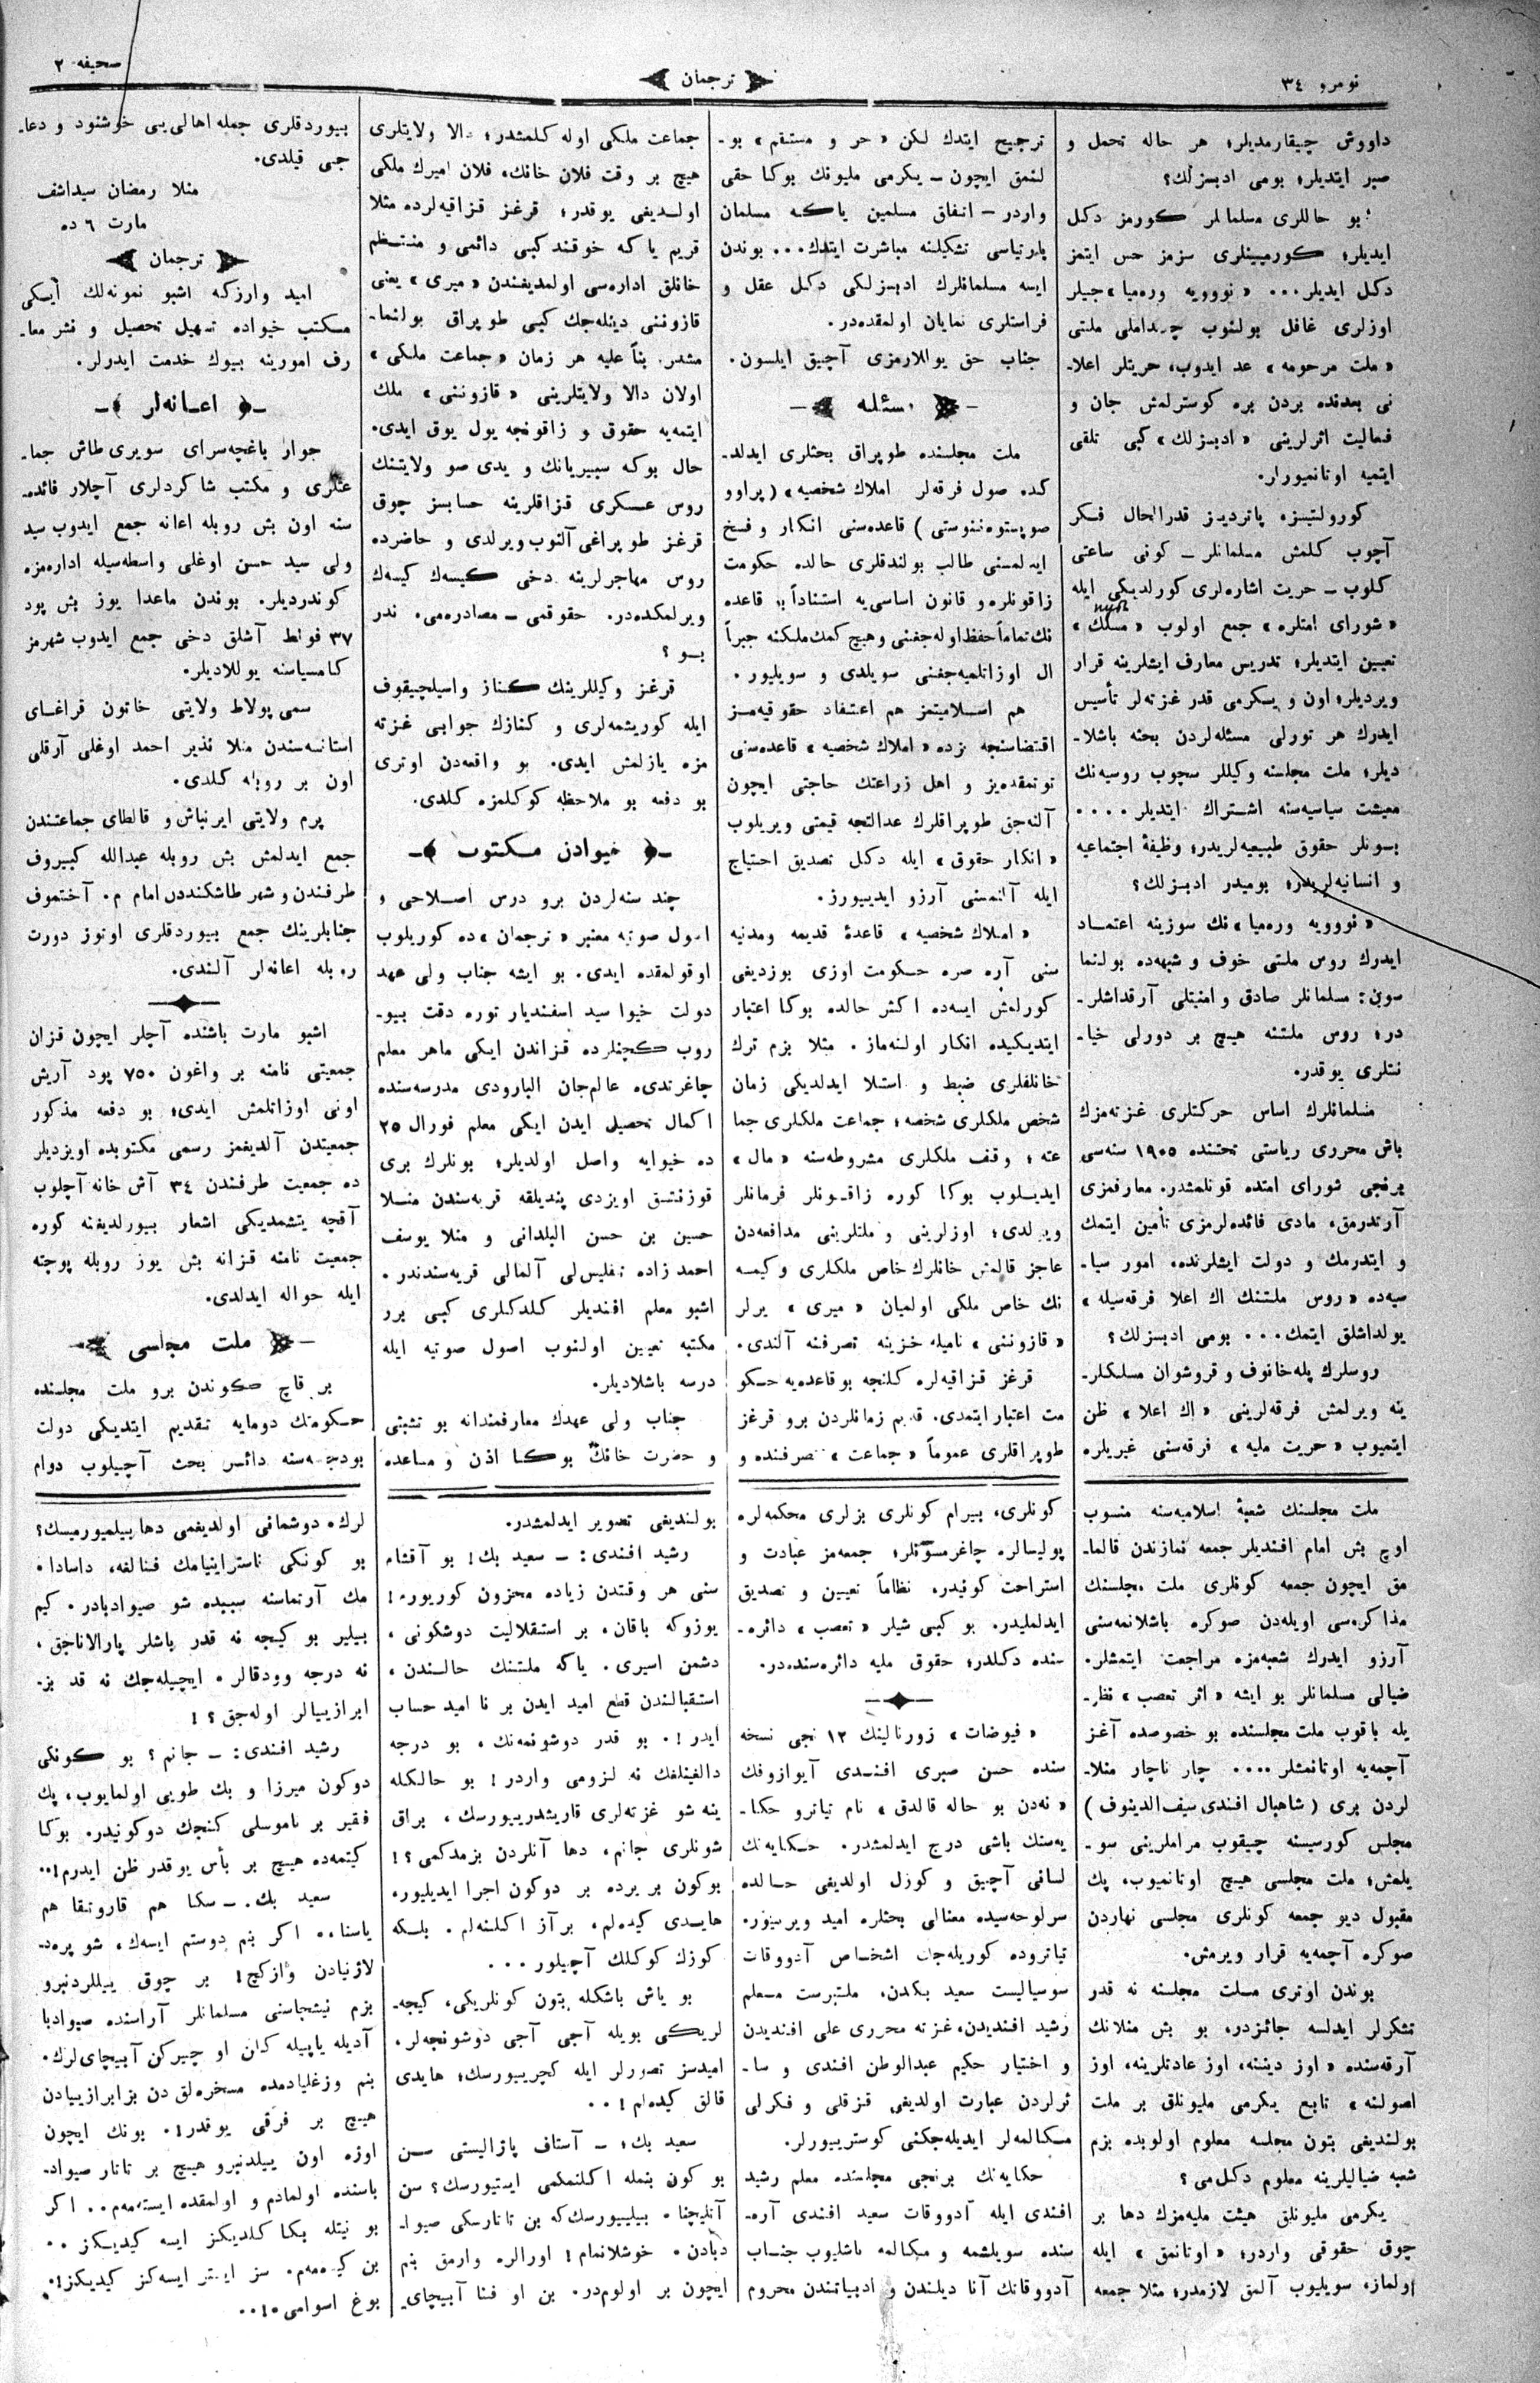 نومرو ٣٤
ترجمان
صحيفه ٢
داووش چيقارمديلر؛ هر حاله تحمل و
صبر ايتديلر؛ بومى ادبسزلك؟
بو حاللرى مسلمانلر كورمز دكل
ايديلر؛ كورميينلرى سزمز حس ايتمز
دكل ايديلر... «نوويه ورهميا»جيلر
اوزلرى غافل بولنوب چيداملى ملتى
«ملت مرحومه» عد ايدوب، حريتلر اعلا-
نى بعدنده بردن بره كوسترلمش جان و
فعاليت اثرلرينى «ادبسزلك» كبى تلقى
ايتميه اوتانميورلر.
كورولتيسزه پاترديسز قدرالحال فكر
آچوب كلمش مسلمانلر – كونى ساعتى
كلوب – حريت اشارهلرى كورلديكى ايله
«شوراى امتلره» جمع اولوب «مسلك»
تعيين ايتديلر؛ تدريس معارف ايشلرينه قرار
ويرديلر؛ اون و يكرمى قدر غزتهلر تأسيس
ايدرك هر تورلى مسئلهلردن بحثه باشلا-
ديلر؛ ملت مجلسنه وكيللر سچوب روسيهنك
معيشت سياسيهسنه اشتراك ايتديلر....
بونلر حقوق طبيعيهلريدر؛ وظيفۀ اجتماعيه
و انسانيهلريدر؛ بوميدر ادبسزلك؟
«نوويه ورهميا»نك سوزينه اعتماد
ايدرك روس ملتى خوف و شبههده بولنما
سون: مسلمانلر صادق و امنيتلى آرقداشلر-
در؛ روس ملتنه هيچ بر دورلى خيا-
نتلرى يوقدر.
مسلمانلرك اساس حركتلرى غزتهمزك
باش محررى رياستى تحتنده ١٩٠٥ سنهسى
برنجى شوراى امتده قونلمشدر. معارفمزى
آرتدرمق، مادى فائدهلرمزى تأمين ايتمك
و ايتدرمك و دولت ايشلرنده، امور سيا-
سيهده «روس ملتنك اك اعلا فرقهسيله»
يولداشلق ايتمك... بومى ادبسزلك؟
روسلرك پلهخانوف و قروشوان مسلكلر-
ينه ويرلمش فرقهلرينى «اك اعلا» ظن
ايتميوب «حريت مليه» فرقهسنى غيريلره
ترجيح ايتدك لكن «حر و مستقم» بو-
لنمق ايچون – يكرمى مليونك بوكا حقى
واردر – اتفاق مسلمين ياكه مسلمان
پارتياسى تشكيلنه مباشرت ايتدك... بوندن
ايسه مسلمانلرك ادبسزلكى دكل عقل و
فراستلرى نمايان اولمقدهدر.
جناب حق يوللارمزى آچيق ايلسون.
مسئله
ملت مجلسنده طوپراق بحثلرى ايدلد-
كده صول فرقهلر املاك شخصيه» (پراوو
صوپستوهننوستى) قاعدهسنى انكار و فسخ
ايدلمسنى طالب بولندقلرى حالده حكومت
زاقونلره و قانون اساسىيه استناداً بو قاعده
نك تماماً حفظ اولهجغنى و هيچ كمك ملكنه جبراً
ال اوزاتلميهجغنى سويلدى و سويليور.
هم اسلاميتمز هم اعتقاد حقوقيهمز
اقتضاسنجه بزده «املاك شخصيه» قاعدهسنى
توتمقدهيز و اهل زراعتك حاجتى ايچون
آلنهجق طوپراقلرك عدالتجه قيمتى ويريلوب
«انكار حقوق» ايله دكل تصديق احتياج
ايله آلنمسنى آرزو ايدييورز.
«املاك شخصيه» قاعدۀ قديمه ومدنيه
سنى آره صره حكومت اوزى بوزديغى
كورلمش ايسهده اكثر حالده بوكا اعتبار
ايتديكيده انكار اولنهماز. مثلا بزم ترك
خانلقلرى ضبط و استلا ايدلديكى زمان
شخص ملكلرى شخصه؛ جماعت ملكلرى جما
عته؛ وقف ملكلرى مشروطهسنه «مال»
ايديلوب بوكا كوره زاقونلر فرمانلر
ويرلدى؛ اوزلرينى و ملتلرينى مدافعهدن
عاجز قالمش خانلرك خاص ملكلرى وكيمسه
نك خاص ملكى اولميان «ميرى» يرلر
«قازوننى» ناميله خزينه تصرفنه آلندى.
قرغز قزاقيهلره كلنجه بو قاعدهيه حكو
مت اعتبار ايتمدى. قديم زمانلردن برو قرغز
طوپراقلرى عموماً «جماعت» تصرفنده و
جماعت ملكى اوله كلمشدر؛ دالا ولايتلرى
هيچ بر وقت فلان خانك، فلان اميرك ملكى
اولديغى يوقدر؛ قرغز قزاقيهلرده مثلا
قريم ياكه خوقند كبى دائمى و منتظم
خانلق ادارهسى اولمديغندن «ميرى» يعنى
قازوننى دينلهجك كبى طوپراق بولنما-
مشدر. بناً عليه هر زمان «جماعت ملكى»
اولان دالا ولايتلرينى «قازوننى» ملك
ايتمهيه حقوق و زاقونجه يول يوق ايدى.
حال بوكه سيبريانك و يدى صو ولايتنك
روس عسكرى قزاقلرينه حسابسز چوق
قرغز طوپراغى آلنوب ويرلدى و حاضرده
روس مهاجرلرينه دخى كيسهك كيسهك
ويرلمكدهدر. حقوقمى – مصادرهمى. ندر
بو ؟
قرغز وكيللرينك كناز واسيلچيقوف
ايله كوريشمهلرى و كنازك جوابى غزته
مزه يازلمش ايدى. بو واقعهدن اوترى
بو دفعه بو ملاحظه كوكلمزه كلدى.
خيوادن مكتوب
چند سنهلردن برو درس اصلاحى و
اصول صوتيه معتبر «ترجمان»ده كوريلوب
اوقولمقده ايدى. بو ايشه جناب ولى عهد
دولت خيوا سيد اسفنديار توره دقت بيو-
روب كچنلرده قزاندن ايكى ماهر معلم
چاغرتدى. عالمجان البارودى مدرسهسنده
اكمال تحصيل ايدن ايكى معلم فورال ٢٥
ده خيوايه واصل اولديلر؛ بونلرك برى
قوزنتسق اويزدى پنديلقه قريهسندن منلا
حسين بن حسن البلدانى و منلا يوسف
احمد زاده تفليسلى آلمالى قريهسندندر.
اشبو معلم افنديلر كلدكلرى كبى برر
مكتبه تعيين اولنوب اصول صوتيه ايله
درسه باشلاديلر.
جناب ولى عهدك معارفمندانه بو تشبثى
و حضرت خانك بوكا اذن و مساعده
بيوردقلرى جمله اهالىيى خوشنود و دعا-
جى قيلدى.
منلا رمضان سيداشف
مارت ٦ ده
ترجمان
اميد وارزكه اشبو نمونهلك ايكى
مكتب خيواده تسهيل تحصيل و نشر معا-
رف امورينه بيوك خدمت ايدرلر.
اعانهلر
جوار باغچهسراى سويرى طاش جما-
عتلرى و مكتب شاكردلرى آچلار فائده-
سنه اون بش روبله اعانه جمع ايدوب سيد
ولى سيد حسن اوغلى واسطهسيله ادارهمزه
كوندرديلر. بوندن ماعدا يوز بش پود
٣٧ فونط آشلق دخى جمع ايدوب شهرمز
كامسياسنه يوللاديلر.
سمى پولاط ولايتى خاتون قراغاى
استانسهسندن منلا نذير احمد اوغلى آرقلى
اون بر روبله كلدى.
پرم ولايتى ايرنباش و قالطاى جماعتندن
جمع ايدلمش بش روبله عبدالله كبيروف
طرفندن و شهر طاشكنددن امام م. آختموف
جنابلرينك جمع بيوردقلرى اوتوز دورت
روبله اعانهلر آلندى.
اشبو مارت باشنده آچلر ايچون قزان
جمعيتى نامنه بر واغون ٧٥٠ پود آرپش
اونى اوزاتلمش ايدى؛ بو دفعه مذكور
جمعيتدن آلديغمز رسمى مكتوبده اويزديلر
ده جمعيت طرفندن ٣٤ آش خانه آچلوب
آقچه يتشمديكى اشعار بيورلديغنه كوره
جمعيت نامنه قزانه بش يوز روبله پوچته
ايله حواله ايدلدى.
ملت مجلسى
بر قاچ كوندن برو ملت مجلسنده
حكومتك دومايه تقديم ايتديكى دولت
بودجهسنه دائر بحث آچيلوب دوام
ملت مجلسنك شعبۀ اسلاميهسنه منسوب
اوچ بش امام افنديلر جمعه نمازندن قالما-
مق ايچون جمعه كونلرى ملت مجلسنك
مذاكرهسى اويلهدن صوكره باشلانمهسنى
آرزو ايدرك شعبهمزه مراجعت ايتمشلر.
ضيالى مسلمانلر بو ايشه «اثر تعصب» نظر-
يله باقوب ملت مجلسنده بو خصوصده آغز
آچمهيه اوتانمشلر.... چار ناچار منلا-
لردن برى (شاهبال افندى سيف الدينوف)
مجلس كورسيسنه چيقوب مراملرينى سو-
يلمش؛ ملت مجلسى هيچ اوتانميوب، پك
مقبول ديو جمعه كونلرى مجلسى نهاردن
صوكره آچمهيه قرار ويرمش.
بوندن اوترى ملت مجلسنه نه قدر
تشكرلر ايدلسه جائزدر. بو بش منلانك
آرقهسنده «اوز ديننه، اوز عادتلرينه، اوز
اصولنه» تابع يكرمى مليونلق بر ملت
بولنديغى بتون مجلسه معلوم اولوبده بزم
شعبه ضياليلرينه معلوم دكلمى؟
يكرمى مليونلق هيئت مليهمزك دها بر
چوق حقوقى واردر؛ «اوتانمق» ايله
اولماز، سويليوب آلمق لازمدر؛ مثلا جمعه
كونلرى، بيرام كونلرى بزلرى محكمهلره
پوليسالره چاغرمسونلر؛ جمعهمز عبادت و
استراحت كونيدر، نظاماً تعيين و تصديق
ايدلمليدر. بو كبى شيلر «تعصب» دائره-
سنده دكلدر؛ حقوق مليه دائرهسندهدر.
«فيوضات» زورنالينك ١٢ نجى نسخه
سنده حسن صبرى افندى آيوازوفك
«نهدن بو حاله قالدق» نام تياترو حكا-
يهسنك باشى درج ايدلمشدر. حكايهنك
لسانى آچيق و كوزل اولديغى حالده
سرلوحهسيده معنالى بحثلره اميد ويرييور.
تياتروده كوريلهجك اشخاص آدووقات
سوسياليست سعيد بكدن، ملتپرست معلم
رشيد افنديدن، غزته محررى على افنديدن
و اختيار حكيم عبدالوطن افندى و سا-
ئرلردن عبارت اولديغى قزقلى و فكرلى
مكالمهلر ايديلهجكنى كوسترييورلر.
حكايهنك برنجى مجلسنده معلم رشيد
افندى ايله آدووقات سعيد افندى آره-
سنده سويلشمه و مكالمه باشليوب جناب
آدووقاتك آنا ديلندن و ادبياتندن محروم
بولنديغى تصوير ايدلمشدر.
رشيد افندى: – سعيد بك! بو آقشام
سنى هر وقتدن زياده محزون كوريوره!
يوزوكه باقان، بر استقلاليت دوشكونى،
دشمن اسيرى. ياكه ملتنك حالندن،
استقبالندن قطع اميد ايدن بر نا اميد حساب
ايدر!. بو قدر دوشونمهنك، بو درجه
دالغينلغك نه لزومى واردر! بو حالكله
ينه شو غزتهلرى قاريشدرييورسك، براق
شونلرى جانم، دها آنلردن بزمدكمى؟!
بوكون بر يرده بر دوكون اجرا ايديليور.
هايدى كيدهلم، بر آز اكلنهلم. بلكه
كوزك كوكلك آچيلور...
بو ياش باشكله بتون كونلريكى، كيجه-
لريكى بويله آجى آجى دوشونجهلر،
اميدسز تصورلر ايله كچرييورسك؛ هايدى
قالق كيدهلم!..
سعيد بك؛ – آستاف پاژاليستى سن
بو كون بنمله اكلنمكمى ايستيورسك؟ سن
آنليچنا. بيلييورسك كه بن تاتارسكى صيوا-
دبادن. خوشلانمام! اورالره وارمق بنم
ايچون بر اولومدر. بن او فنا آبيچاى-
لرك، دوشمانى اولديغمى دها بيلميورميسك؟
بو كونكى ناسترايينيامك فنالغه، داسادا.
مك آرتماسنه سببده شو صيوادبادر. كيم
بيلير بو كيجه نه قدر باشلر پارالاناجق،
نه درجه وودقالر. ايچيلهجك نه قدر بز-
ابرازييالر اولهجق؟!
رشيد افندى: – جانم؟ بو كونكى
دوكون ميرزا و بك طويى اولمايوب، پك
فقير بر ناموسلى كنجك دوكونيدر. بوكا
كيتمهده هيچ بر بأس يوقدر ظن ايدرم!..
سعيد بك. – سكا هم قاروتقا هم
ياسنا.. اكر بنم دوستم ايسهك، شو پرهد-
لاژنيادن واز كچ! بر چوق ييللردنبرو
بزم نيشجاسنى مسلمانلر آراسنده صيوادبا
آديله ياپيله كلن او چيركن آبيچاىلرك.
بنم وزغليادمده مسخرهلق دن بزابرازييادن
هيچ بر فرقى يوقدر!. بونك ايچون
اوزه اون ييلدنبرو هيچ بر تاتار صيواد-
باسنده اولمادم و اولمقده ايستهمم.. اكر
بو نيتله بكا كلديكز ايسه كيديكز..
بن كيدهمم. سز ايستر ايسهكز كيديكز!.
بوغ اسوامى.!..